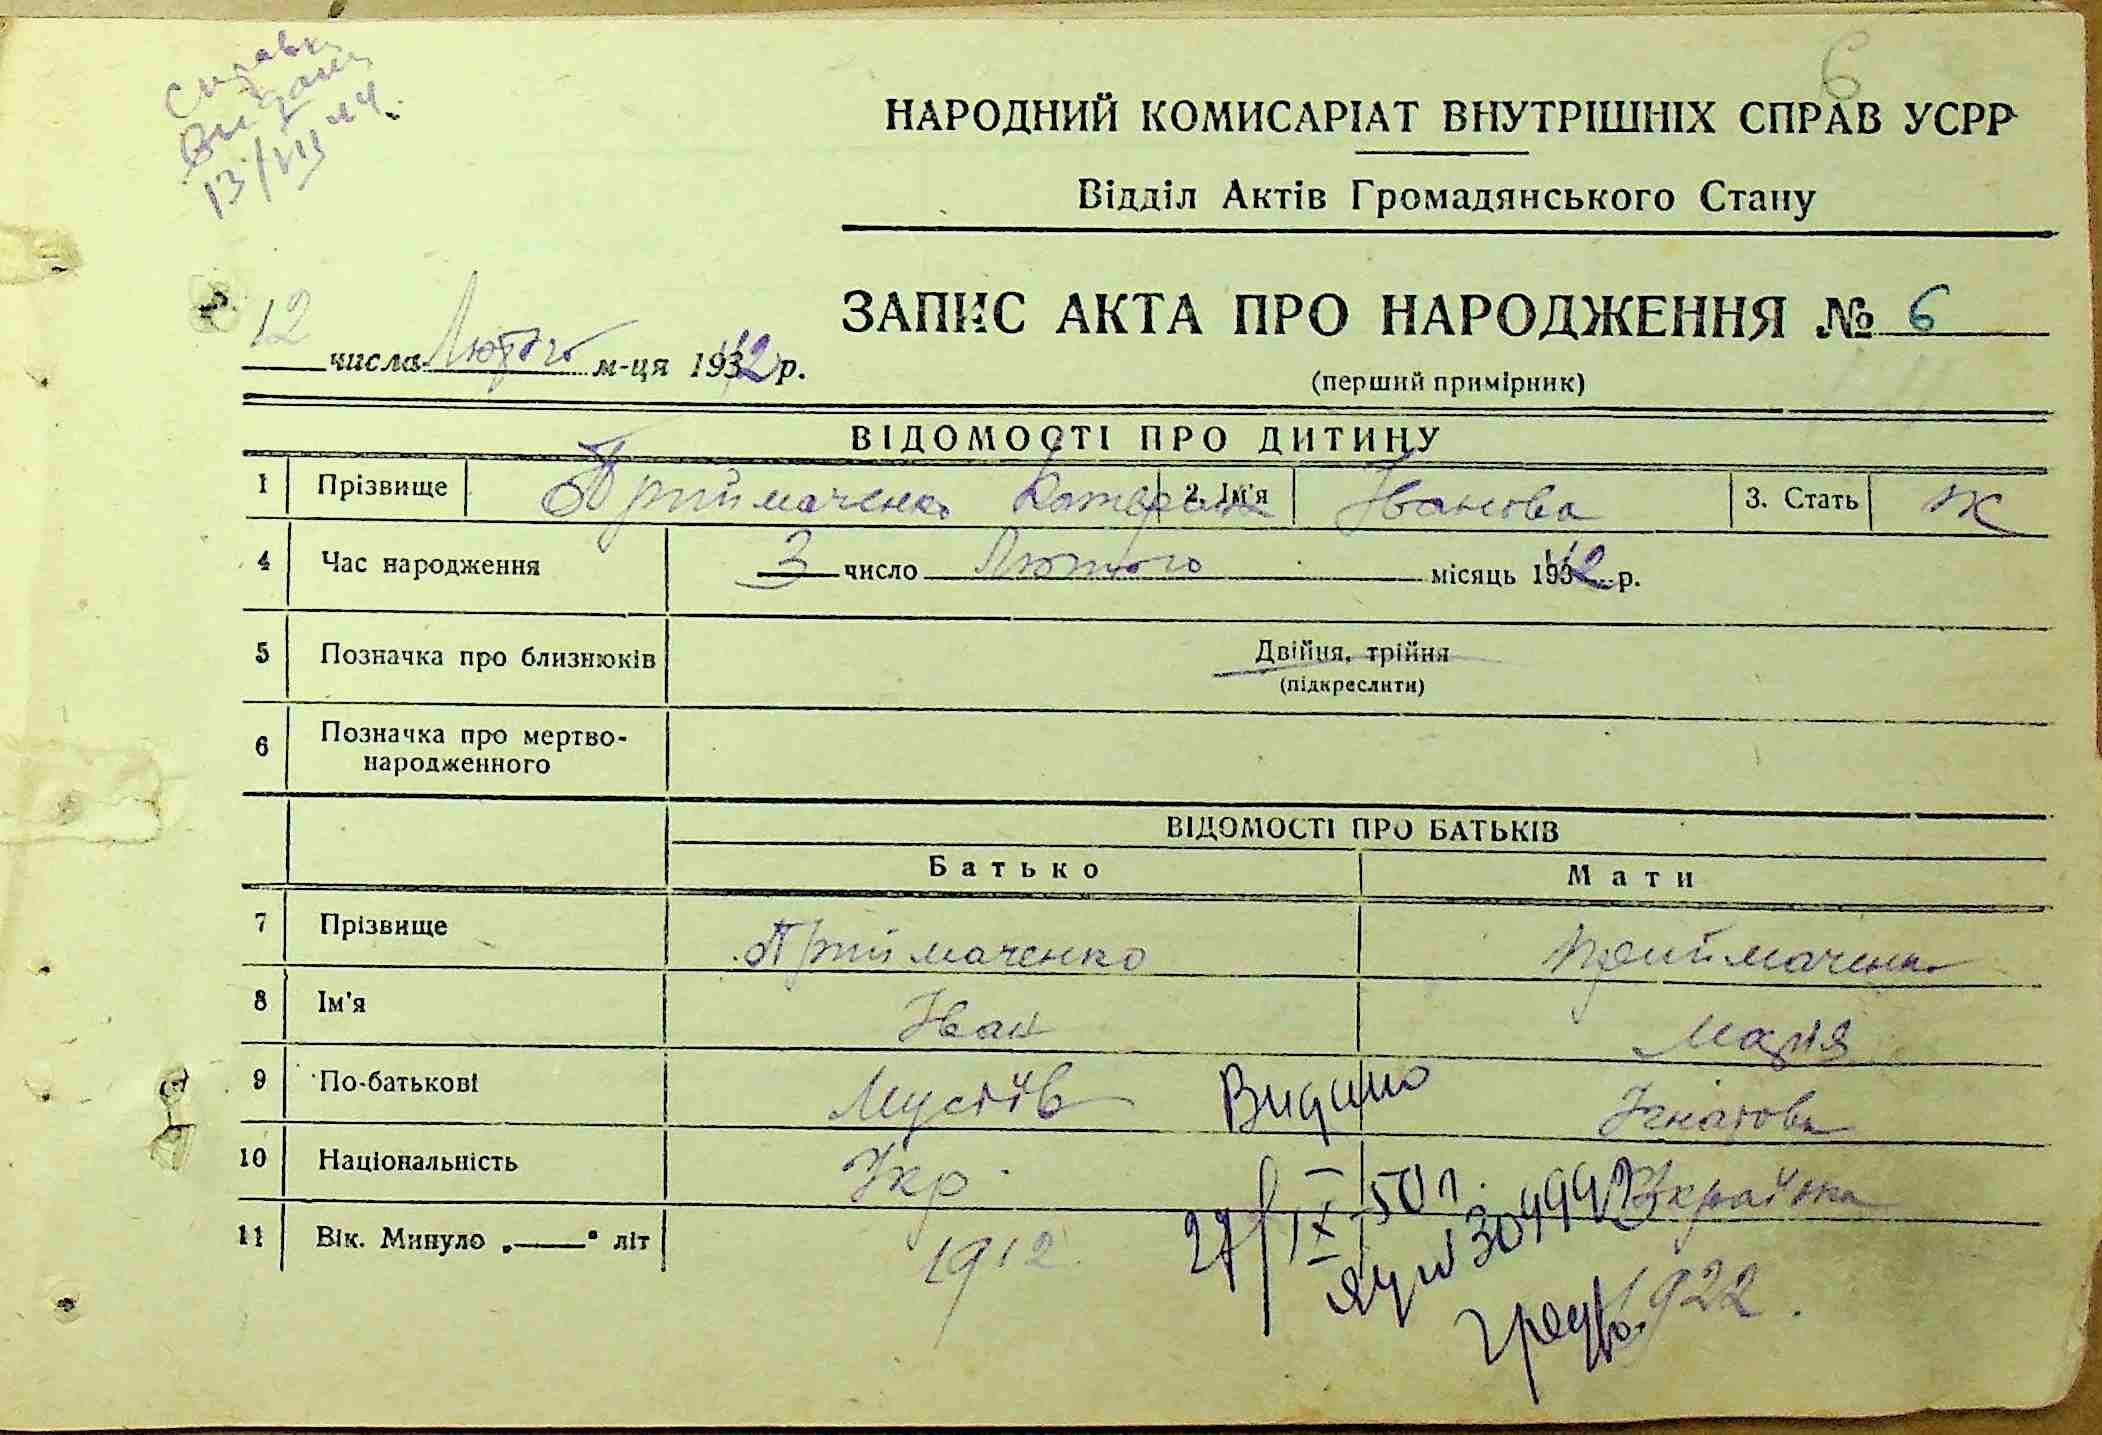 6
Справка
Видана
13/VII 44.
НАРОДНИЙ КОМИСАРІАТ ВНУТРІШНІХ СПРАВ УСРР
Відділ Актів Громадянського Стану
12 числа Лютого м-ця 1942 р.
ЗАПИС АКТА ПРО НАРОДЖЕННЯ № 6
(перший примірник)
ВІДОМОСТІ ПРО ДИТИНУ
1 Прізвище Приймаченко Катерина 2. Ім'я Іванова 3. Стать Ж
4 Час народження 3 число Лютого місяць 1942 р.
5 Позначка про близнюків Двійня, трійня
(підкреслити)
6 Позначка про мертво-
народженного
ВІДОМОСТІ ПРО БАТЬКІВ
Батько Мати
7 Прізвище Приймаченко Приймаченко
8 Ім'я Іван Марія
9 По-батькові Мусіїв Ігнатова
Видано
10 Національність Укр. Українка
27/IX-50 п.
11 Вік. Минуло „——" літ 1912 1922.